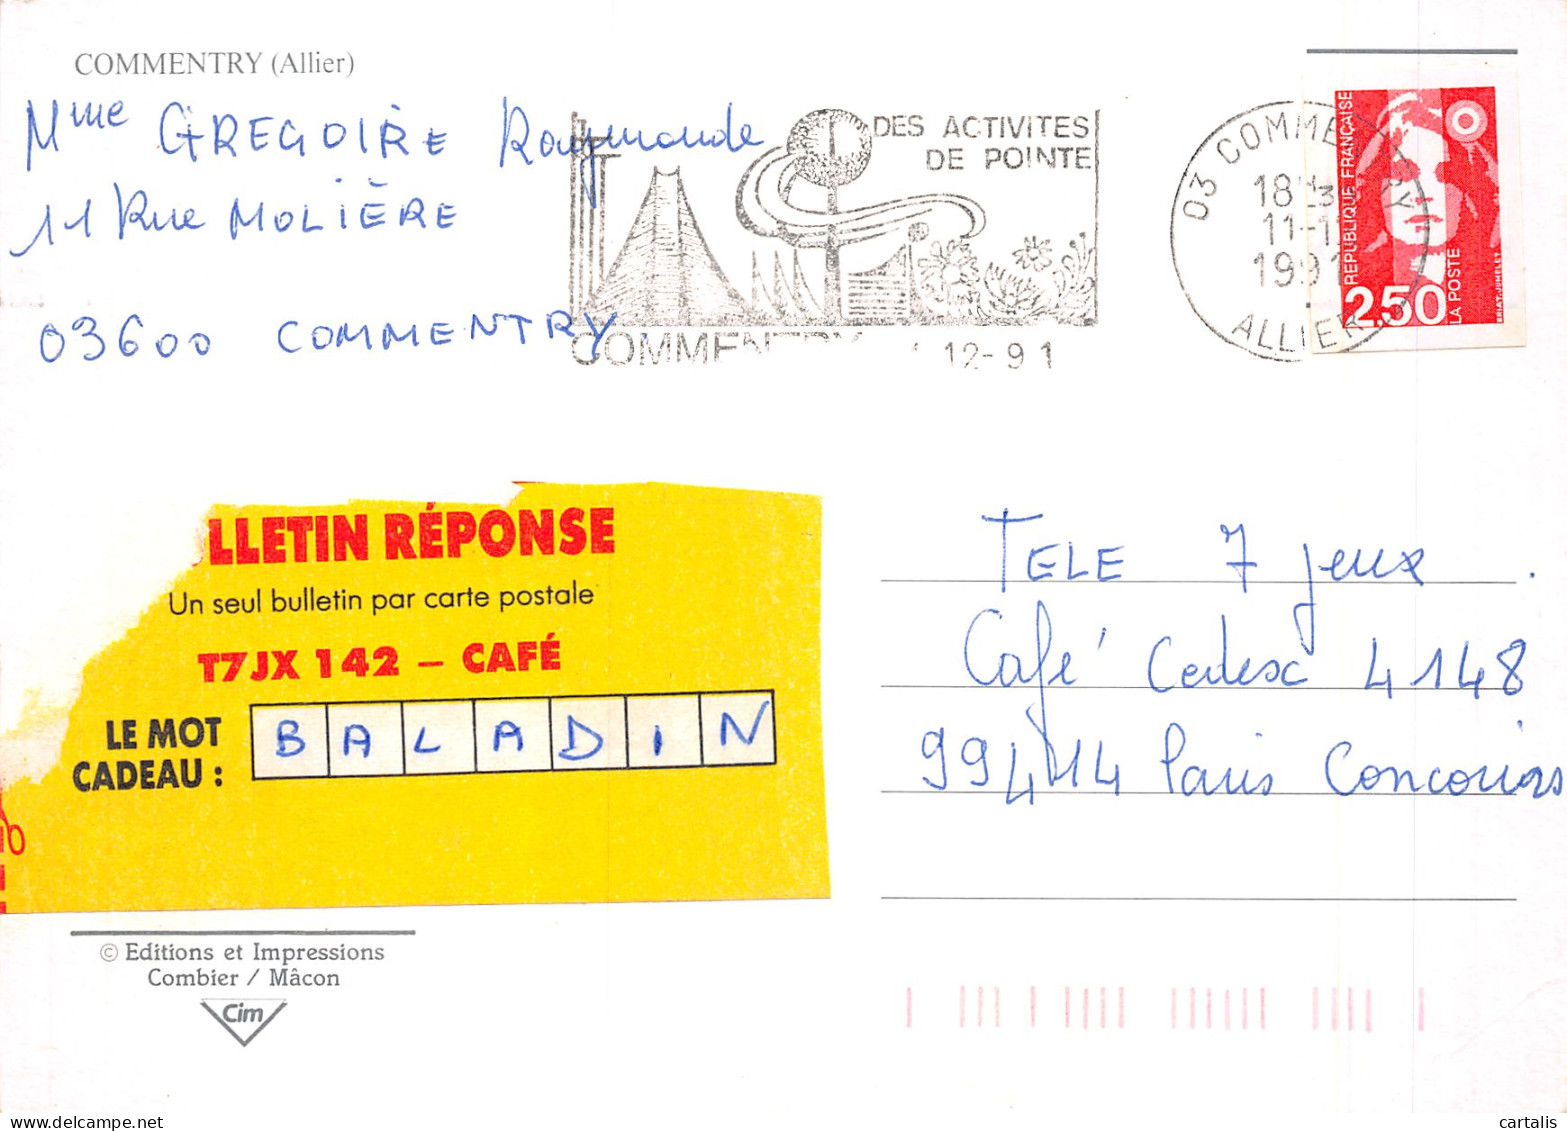 COMMENTRY (Allier)
Mme GREGOIRE Raymonde
11 Rue MOLIÈRE
03600 COMMENTRY
DES ACTIVITES
DE POINTE
COMMENTRY 12-91
03 COMMENTRY
18H3
11-1
1991
ALLIER
REPUBLIQUE FRANÇAISE
2,50
LA POSTE
BRIAT-JUMELET
LLETIN RÉPONSE
Un seul bulletin par carte postale
T7JX 142 – CAFÉ
LE MOT
CADEAU :
BALADIN
TELE 7 jeux
Café Cedex 4148
99414 Paris Concours
© Editions et Impressions
Combier / Mâcon
Cim
cartalis